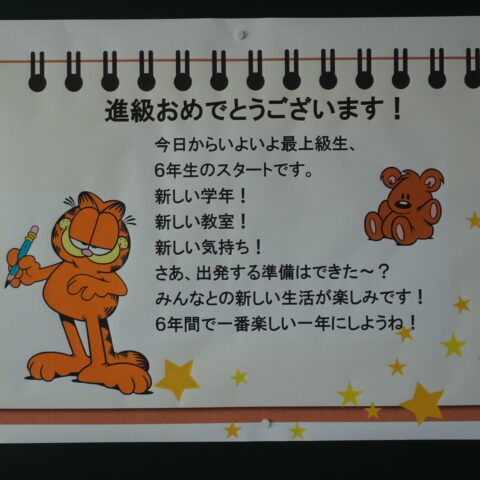 進級おめでとうございます！
今日からいよいよ最上級生、
６年生のスタートです。
新しい学年！
新しい教室！
新しい気持ち！
さあ、出発する準備はできた～？
みんなとの新しい生活が楽しみです！
６年間で一番楽しい一年にしようね！